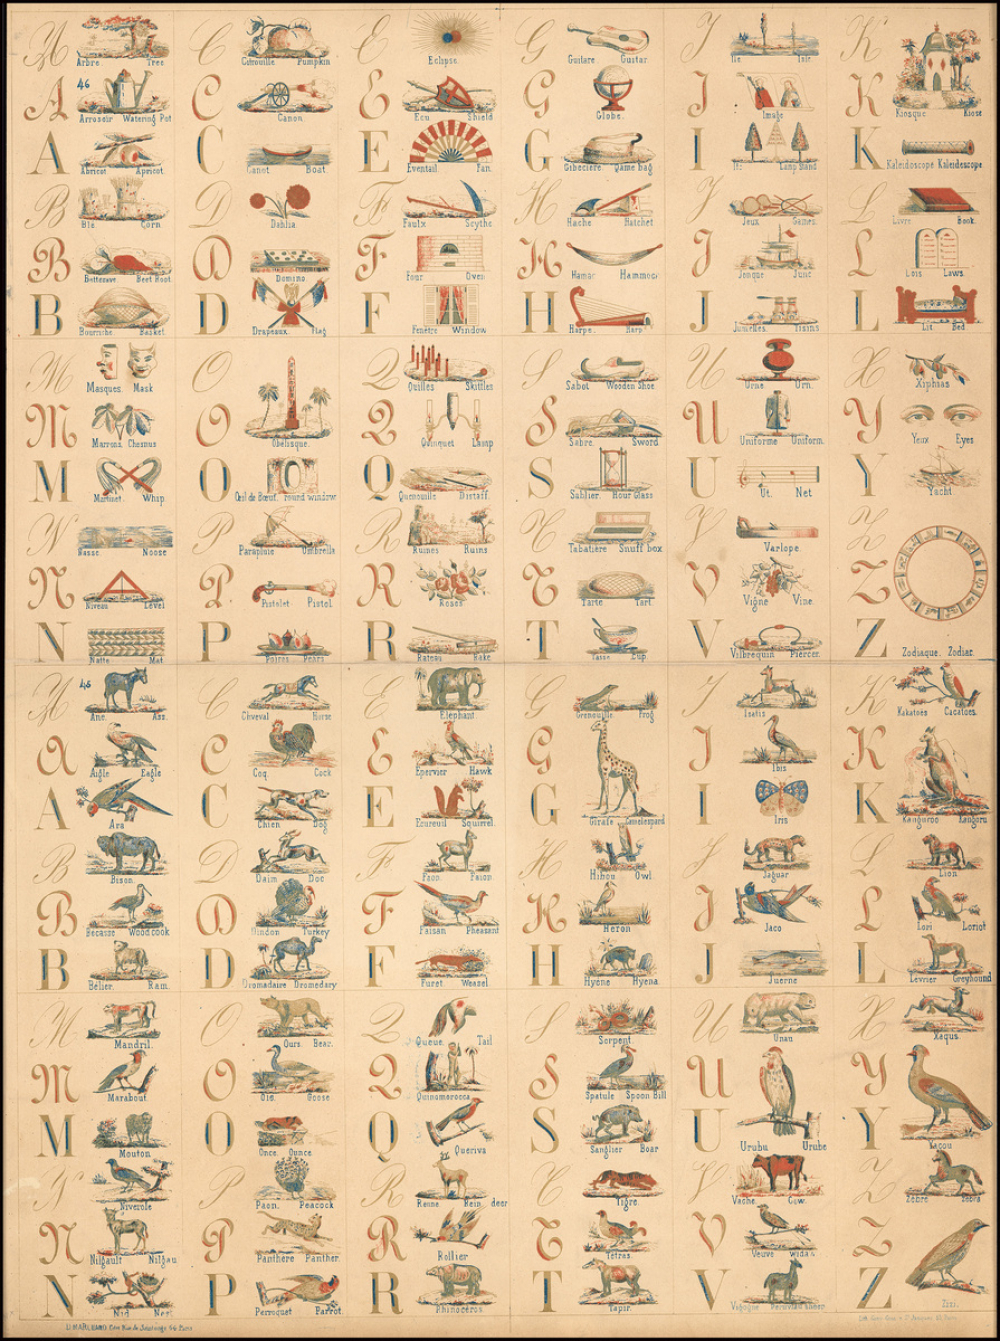 A
Arbre Tree
C
Citrouille Pumpkin
E
Eclipse.
G
Guitare Guitar
J
Ile
K
46
A
Arrosoir Watering Pot
C
Canon.
E
Ecu Shield
G
Globe.
J
Image
K
Kiosque
A
Abricot Apricot
C
Canot Boat
E
Eventail. Fan.
G
Gibeciere Game bag
I
Ifs Lamp Stand
K
Kaleidoscope Kaleidoscope
B
Blé Corn.
D
Dahlia.
F
Faulx Scythe
H
Hache Hatchet
J
Jeux Games.
L
Livre Book.
B
Betterave. Beet Root
D
Domino
F
Four Oven
H
Hamac Hammoc
J
Jonque Junc
L
Lois Laws.
B
Bourriche Basket
D
Drapeaux. Flag
F
Fenêtre Window
H
Harpe. Harp
J
Jumelles.
L
Lit Bed
M
Masques. Mask
O
Q
Quilles Skittles
S
Sabot Wooden Shoe.
U
Urne Urn.
X
Xiphias
M
Marrons. Chesnus
O
Obelisque.
Q
Quinquet Lamp
S
Sabre. Sword
U
Uniforme Uniform.
Y
Yeux Eyes
M
Martinet. Whip
O
Œil de Bœuf. round window
Q
Quenouille Distaff.
S
Sablier. Hour Glass
U
Ut. Net
Y
Yacht
N
Nasse. Noose
P
Parapluie Ombrella
R
Ruines Ruins
T
Tabatière Snuff box
V
Varlope.
Z
N
Niveau Level
P
Pistolet Pistol
R
Roses
T
Tarte Tart.
V
Vigne Vine.
Z
N
Natte Mat
P
Poires Pears
R
Rateau Rake
T
Tasse Cup.
V
Vilbrequin Piercer.
Z
Zodiaque. Zodiac.
A
45
Ane. Ass.
C
Chveval Horse
E
Elephant
G
Grenouille. Frog
J
Isatis
K
Kakatoès Cacatoes.
A
Aigle Eagle
C
Coq. Cock
E
Epervier Hawk
G
J
Ibis
K
A
Ara
C
Chien Dog
E
Ecureuil Squirrel.
G
Girafe Camelespard
I
Iris
K
Kanguroo Kanguru
B
Bison.
D
Daim Doc
F
Faon. Faion
H
Hibou Owl.
J
Jaguar
L
Lion
B
Becasse Woodcook
D
Dindon Turkey
F
Faisan Pheasant
H
Heron
J
Jaco
L
Lori Loriot
B
Bélier. Ram
D
Dromadaire Dromedary
F
Furet. Weasel
H
Hyène Hyena
J
Juerne
L
Levrier Greyhound
M
Mandril.
O
Ours. Bear.
Q
Queue. Tail
S
Serpent.
U
Unau
X
Xequs.
M
Marabout.
O
Oie. Goose
Q
Quinamorocca
S
Spatule Spoon Bill
U
Y
M
Mouton
O
Once. Ounce
Q
Queriva
S
Sanglier Boar
U
Urubu Urube
Y
Yacou
N
Niverole
P
Paon. Peacock
R
Renne Rein deer
T
Tigre.
V
Vache Cow.
Z
Zèbre Zebra
N
Nilgault Nilgau
P
Panthère Panther
R
Rollier
T
Tétras.
V
Veuve wida
Z
N
Nid Nest
P
Perroquet Parrot.
R
Rhinoceros.
T
Tapir.
V
Vigogne
Z
Zizi.